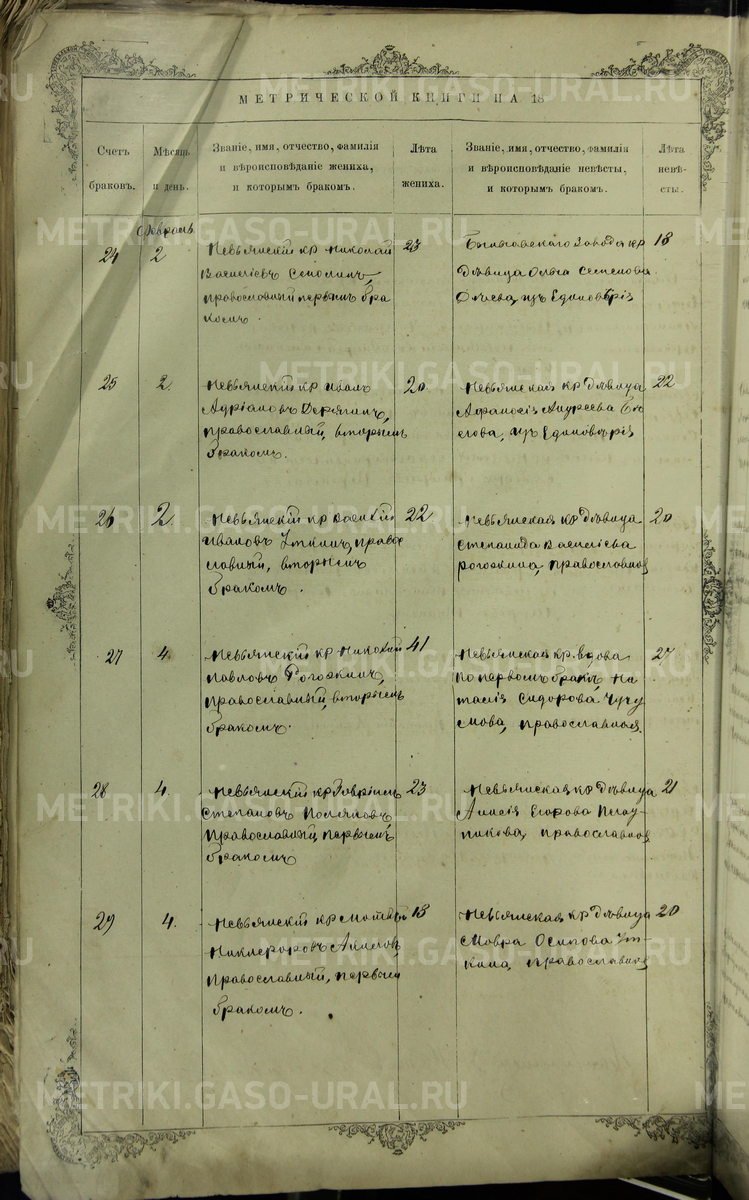 МЕТРИЧЕСКОЙ КНИГИ НА 18
Счетъ
браковъ.
Мѣсяцъ
и день.
Званіе, имя, отчество, фамилія
и вѣроисповѣданіе жениха,
и которымъ бракомъ.
Лѣта
жениха.
Званіе, имя, отчество, фамилія
и вѣроисповѣданіе невѣсты,
и которымъ бракомъ.
Лѣта
невѣ-
сты.
Февраль
24 2 Невьянскій кр Николай 23
Василіевъ
православный первымъ бра
комъ.
Быньговскаго завода кр 18
Дѣвица Ольга Семенова
изъ Единовѣрія
25 2. Невьянскій кр Иванъ 20
Адріановъ Дерягинъ,
православный, вторымъ
бракомъ.
Невьянская кр Дѣвица 22
Афанасія Андреева
изъ Единовѣрія
26 2. Невьянскій кр Василій 22
Ивановъ Уткинъ, право
славный, вторымъ
бракомъ.
Невьянская кр Дѣвица 20
Степанида Василіева
Рогожина, православная
27 4. Невьянскій кр Николай 41
Павловъ Рогожинъ,
православный, вторымъ
бракомъ.
Невьянская кр. вдова 27
по первомъ бракѣ, На
талія Сидорова Чучу
мова, православная.
28 4. Невьянскій кр Гавріилъ 23
Степановъ Поляковъ,
Православный, первымъ
бракомъ
Невьянская кр Дѣвица 21
Егорова
православная
29 4. Невьянскій кр 18
Никифоровъ
Православный, первымъ
бракомъ.
Невьянская кр Дѣвица 20
Мавра Осипова Ут-
кина, православная
METRIKI.GASO-URAL.RU